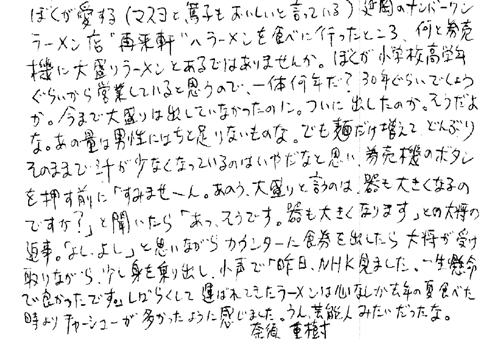 ぼくが愛する(マスヨと篤子もおいしいと言っている)延岡のナンバーワン
ラーメン店"再来軒"へラーメンを食べに行ったところ、何と券売
機に大盛りラーメンとあるではありませんか。ぼくが小学校高学年
ぐらいから営業していると思うので、一体何年だ?30年ぐらいでしょう
か。今まで大盛りは出していなかったのに。ついに出したのか。そうだよ
な。あの量は男性にはちと足りないものな。でも麺だけ増えて、どんぶり
そのままで汁が少なくなっているのはいやだなと思い、券売機のボタン
を押す前に「すみませーん。あのう、大盛りと言うのは、器も大きくなるの
ですか?」と聞いたら「あっ、そうです。器も大きくなります」との大将の
返事。「よし、よし」と思いながらカウンターに食券を出したら大将が受け
取りながら、少し身を乗り出し、小声で「昨日、NHK見ました。一生懸命
で良かったです。」しばらくして運ばれてきたラーメンは心なしか去年の夏食べた
時よりチャーシューが多かったように感じました。うん、芸能人みたいだったな。
奈須 重樹